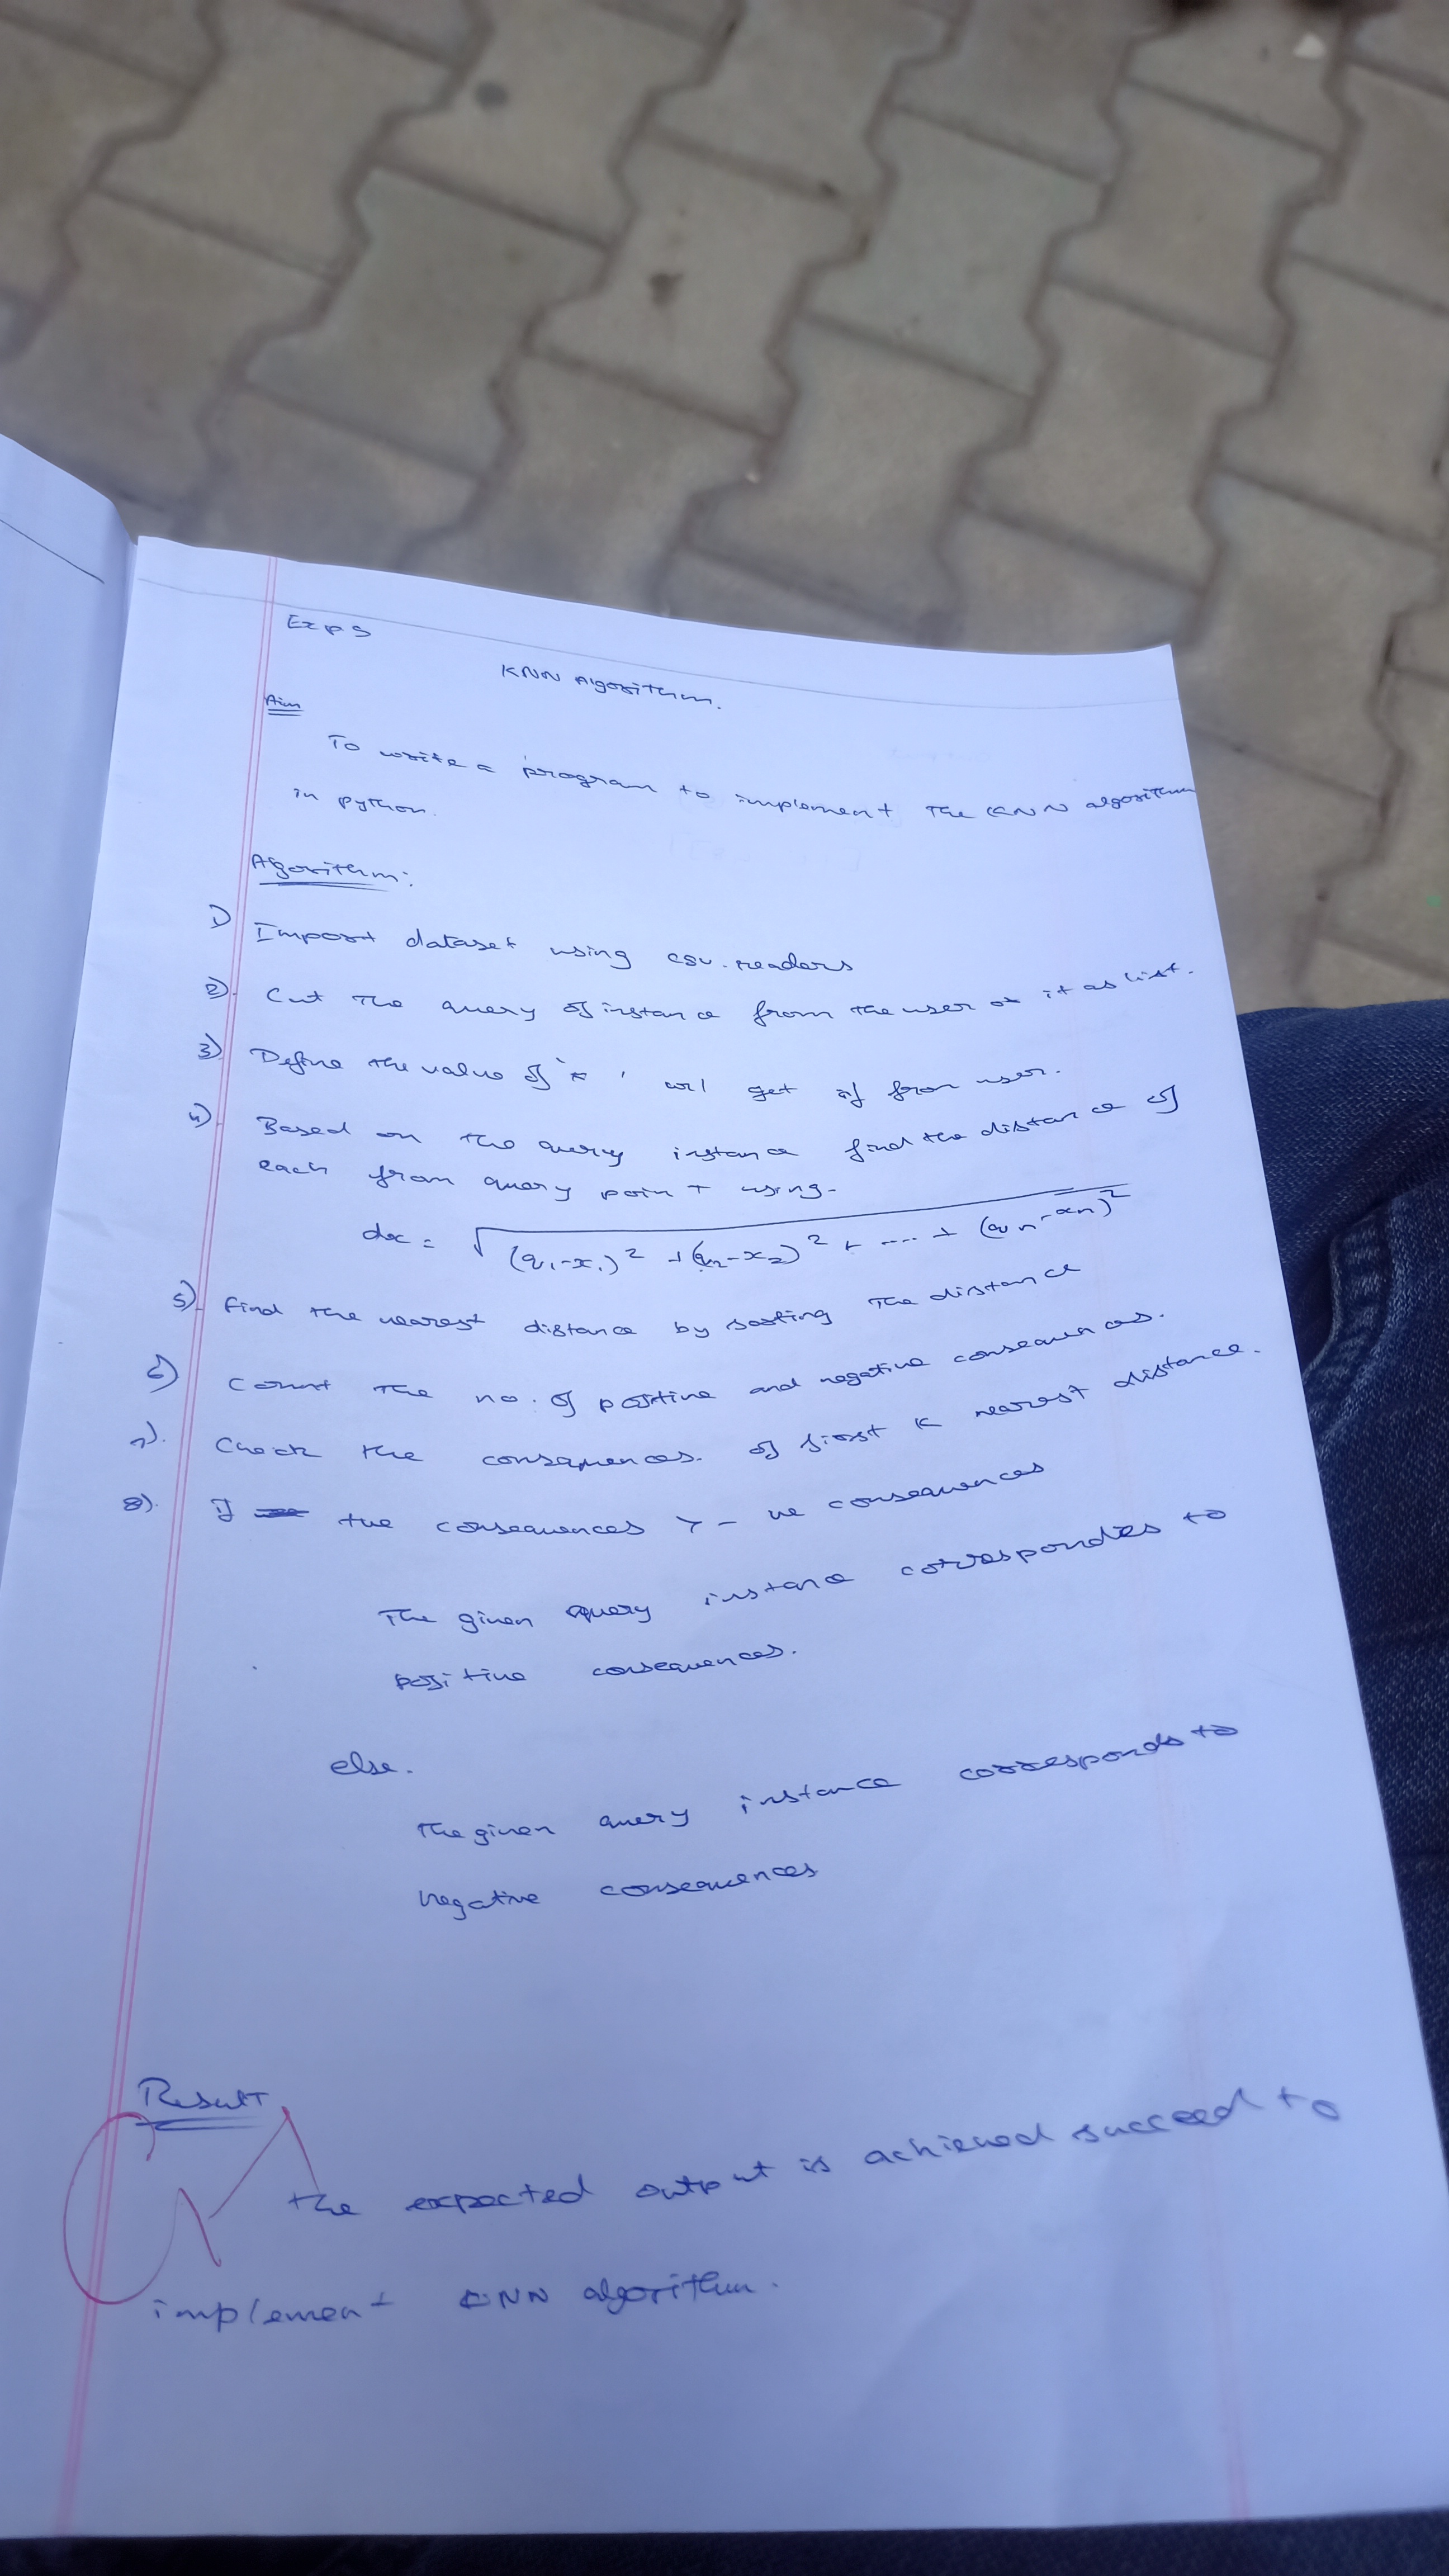 Exp 5
KNN Algorithm.
Aim
To write a program to implement the KNN algorithm
in python.
Algorithm:
1) Import dataset using csv.readers
2). Cut the query of instance from the user it as list.
3) Define the value of 'k' get if from user.
4) Based on the query instance find the distance of
each from query point using-
dx = √(q₁-x₁)² + (q₂-x₂)² + .... + (qn-xn)²
5) Find the nearest distance by sorting the distance
6) Count the no. of positive and negative consequences.
7). Check the consequences. of first K nearest distance.
8). If the consequences > - ve consequences
The given query instance correspondes to
positive consequences.
else.
The given query instance corresponds to
negative consequences
Result
the expected output is achieved succeed to
implement KNN algorithm.